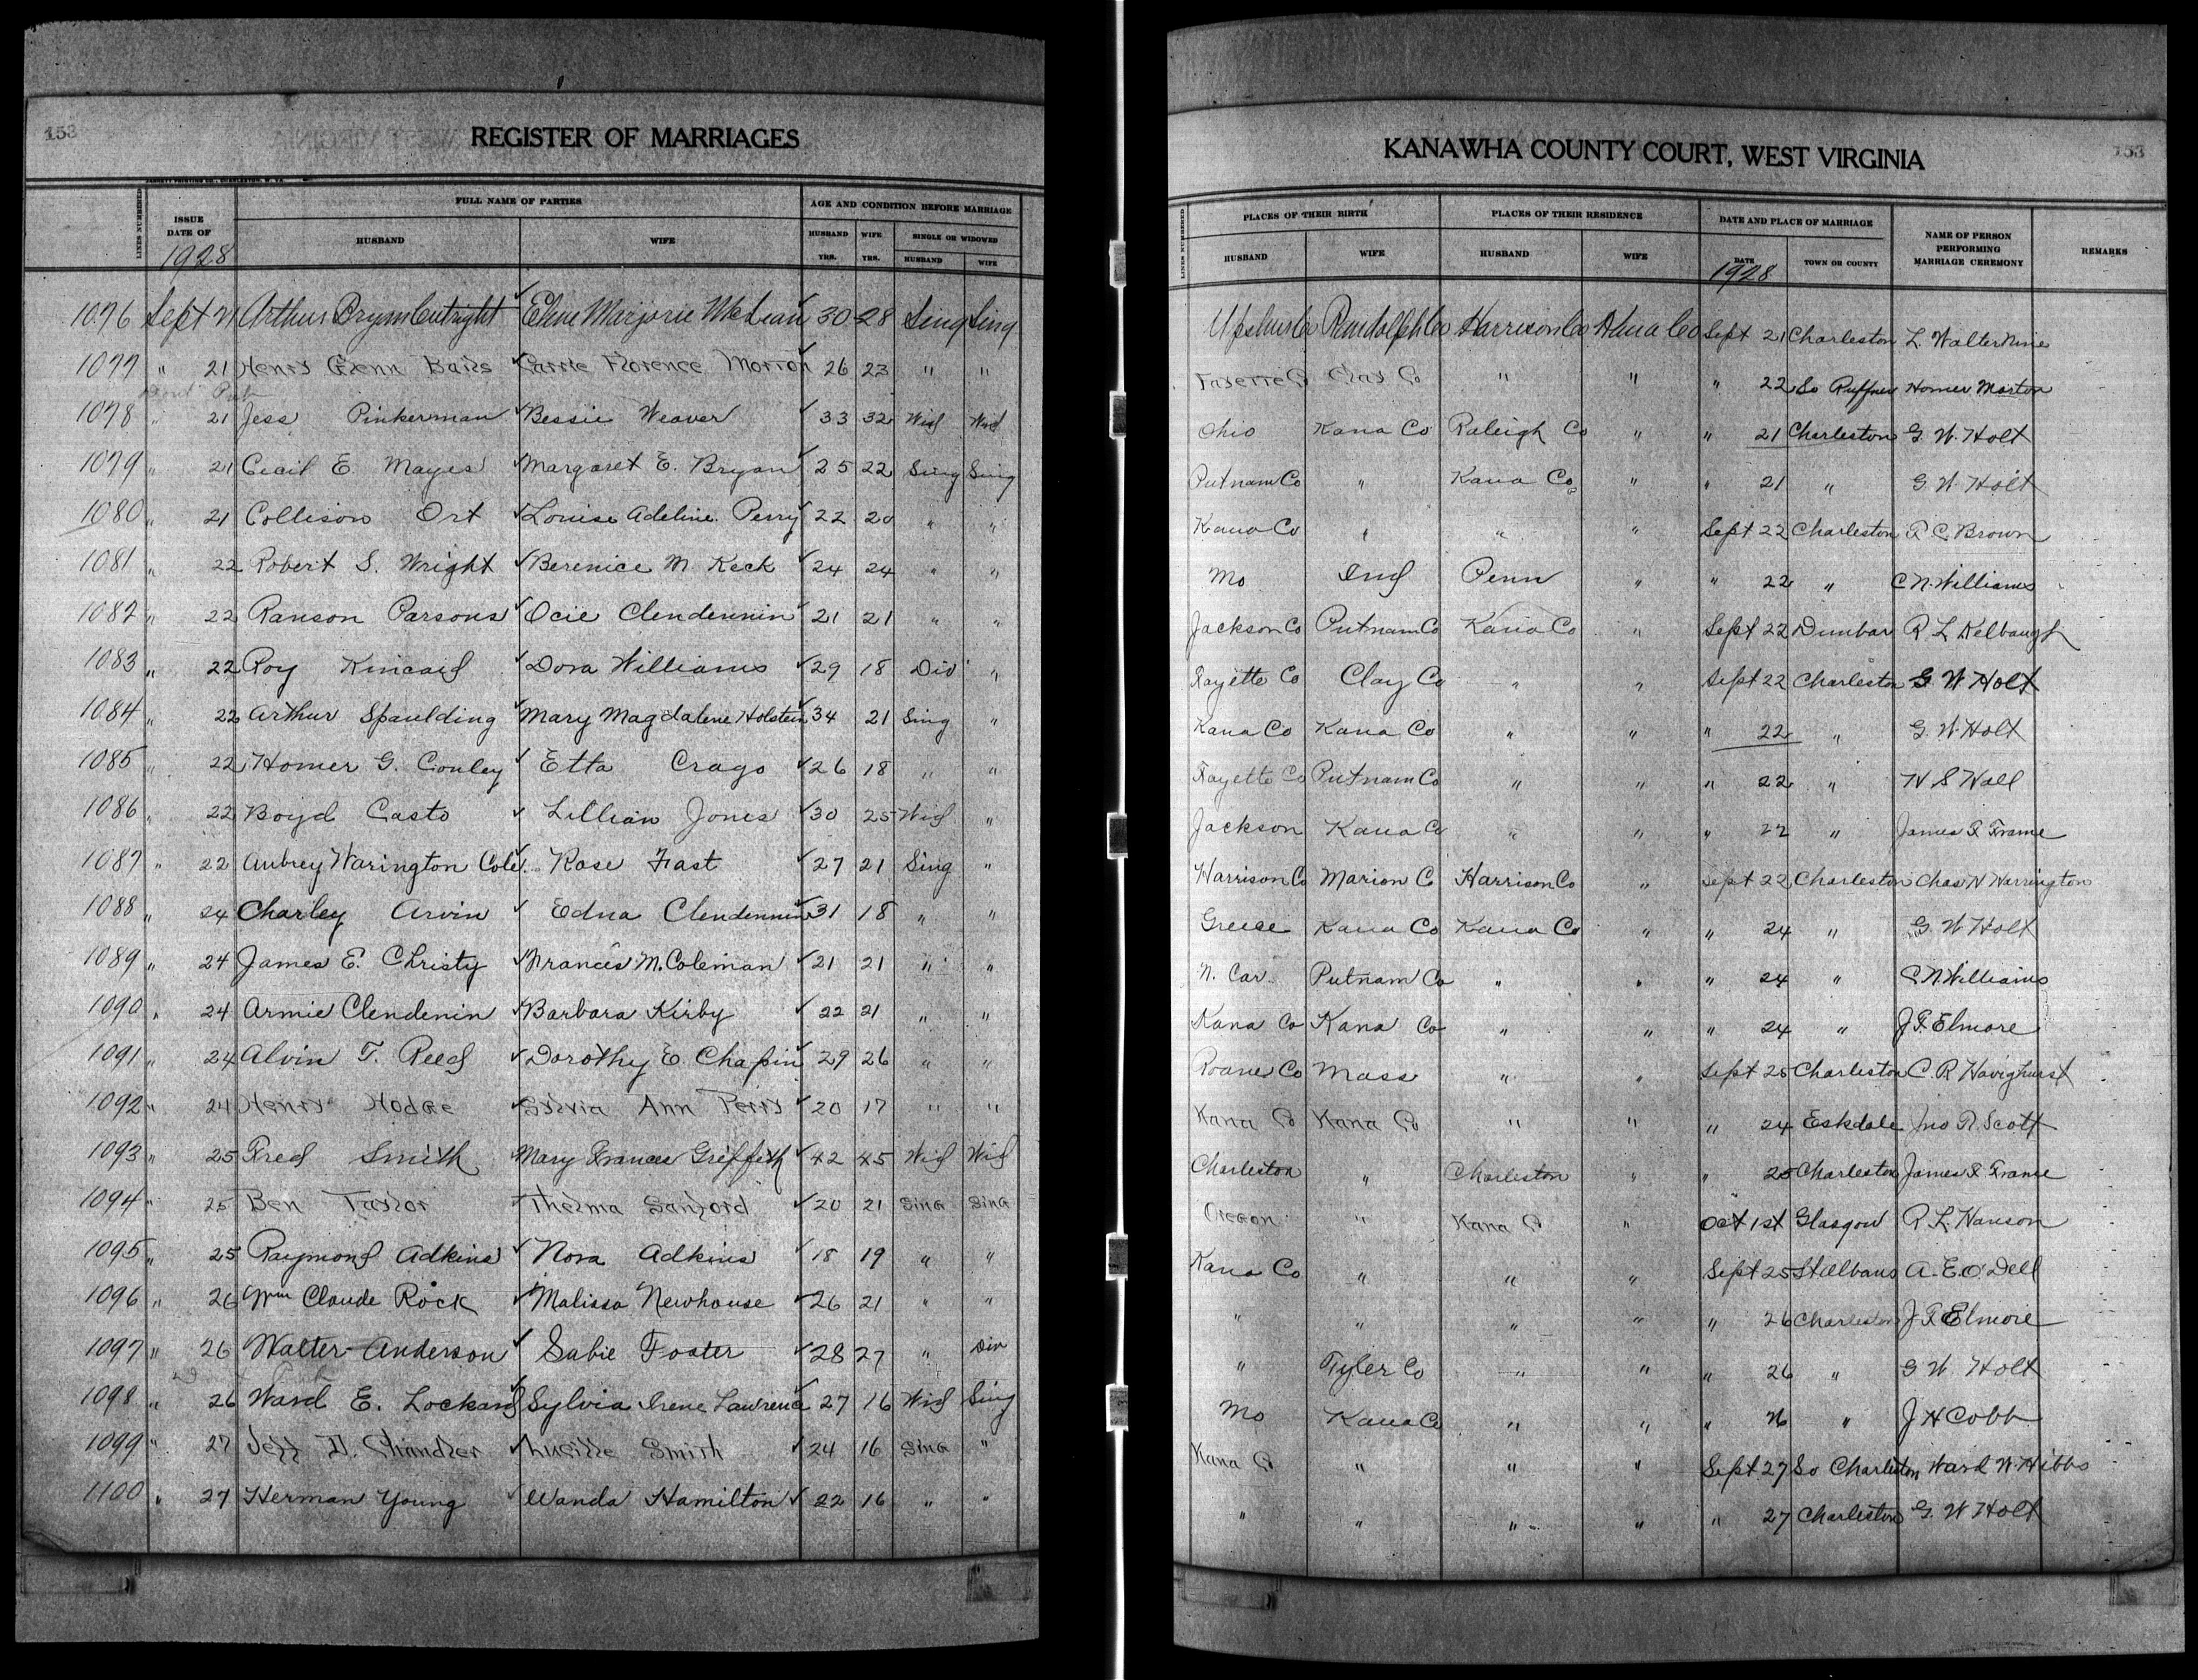 153
REGISTER OF MARRIAGES
LINES NUMBERED
ISSUE DATE OF
1928
FULL NAME OF PARTIES
HUSBAND
WIFE
AGE AND CONDITION BEFORE MARRIAGE
HUSBAND YRS.
WIFE YRS.
SINGLE OR WIDOWED
HUSBAND
WIFE
1076 Sept 21 Arthur Brym Cutright Eline Marjorie McLean 30 28 Sing Sing
1077 " 21 Henry Glenn Bails Carrie Florence Morton 26 23 " "
Dont Pub
1078 " 21 Jess Pinkerman Bessie Weaver 33 32 Wid Wid
1079 " 21 Cecil E. Mayes Margaret E. Bryan 25 22 Sing Sing
1080 " 21 Collison Ort Louise Adeline Perry 22 20 " "
1081 " 22 Robert S. Wright Berenice M. Keck 24 24 " "
1082 " 22 Ranson Parsons Ocie Clendennin 21 21 " "
1083 " 22 Roy Kincaid Dora Williams 29 18 Div "
1084 " 22 Arthur Spaulding Mary Magdalene Holstein 34 21 Sing "
1085 " 22 Homer G. Conley Etta Crago 26 18 " "
1086 " 22 Boyd Casto Lillian Jones 30 25 Wid "
1087 " 22 Aubrey Warington Cole Rose Fast 27 21 Sing "
1088 " 24 Charley Arvin Edna Clendennin 31 18 " "
1089 " 24 James E. Christy Francis M. Coleman 21 21 " "
1090 " 24 Armie Clendenin Barbara Kirby 22 21 " "
1091 " 24 Alvin T. Reed Dorothy E. Chapin 29 26 " "
1092 " 24 Henry Hodge Sylvia Ann Perry 20 17 " "
1093 " 25 Fred Smith Mary Frances Griffith 42 45 Wid Wid
1094 " 25 Ben Taylor Thelma Sanford 20 21 Sing Sing
1095 " 25 Raymond Adkins Nora Adkins 18 19 " "
1096 " 26 Wm Claude Rock Malissa Newhouse 26 21 " "
1097 " 26 Walter Anderson Sabie Foster 28 27 " Div
1098 " 26 Ward E. Lockard Sylvia Irene Lawrence 27 16 Wid Sing
1099 " 27 Jeff D. Chandler Lucille Smith 24 16 Sing "
1100 " 27 Herman Young Wanda Hamilton 22 16 " "
KANAWHA COUNTY COURT, WEST VIRGINIA
153
LINES NUMBERED
PLACES OF THEIR BIRTH
HUSBAND
WIFE
PLACES OF THEIR RESIDENCE
HUSBAND
WIFE
DATE AND PLACE OF MARRIAGE
DATE
1928
TOWN OR COUNTY
NAME OF PERSON PERFORMING MARRIAGE CEREMONY
REMARKS
Upshur Co Randolph Co Harrison Co Kana Co Sept 21 Charleston L. Walter Nine
Fayette Co Clay Co " " " 22 So Ruffner Homer Morton
Ohio Kana Co Raleigh Co " " 21 Charleston G. W. Holt
Putnam Co " Kana Co " " 21 " G. W. Holt
Kana Co " " " Sept 22 Charleston P. C. Brown
Mo Ind Penn " " 22 " C N. Williams
Jackson Co Putnam Co Kana Co " Sept 22 Dunbar R L Kelbaugh
Fayette Co Clay Co " " Sept 22 Charleston G W Holt
Kana Co Kana Co " " " 22 " G. W. Holt
Fayette Co Putnam Co " " " 22 " H S Hall
Jackson Kana Co " " " 22 " James F Frame
Harrison Co Marion C Harrison Co " Sept 22 Charleston Chas H Warrington
Greece Kana Co Kana Co " " 24 " G. W Holt
N. Car. Putnam Co " " " 24 " C N Williams
Kana Co Kana Co " " " 24 " J. F. Elmore
Roane Co Mass " " Sept 25 Charleston C. R Havighurst
Kana Co Kana Co " " " 24 Eskdale Jno R. Scott
Charleston " Charleston " " 25 Charleston James F Frame
Oregon " Kana Co " Oct 1st Glasgow R. L. Hanson
Kana Co " " " Sept 25 St Albans A. E. O'Dell
" " " " " 26 Charleston J F Elmore
" Tyler Co " " " 26 " G W Holt
Mo Kana Co " " " 26 " J H Cobb
Kana Co " " " Sept 27 So Charleston Ward W Hibbs
" " " " " 27 Charleston G. W Holt